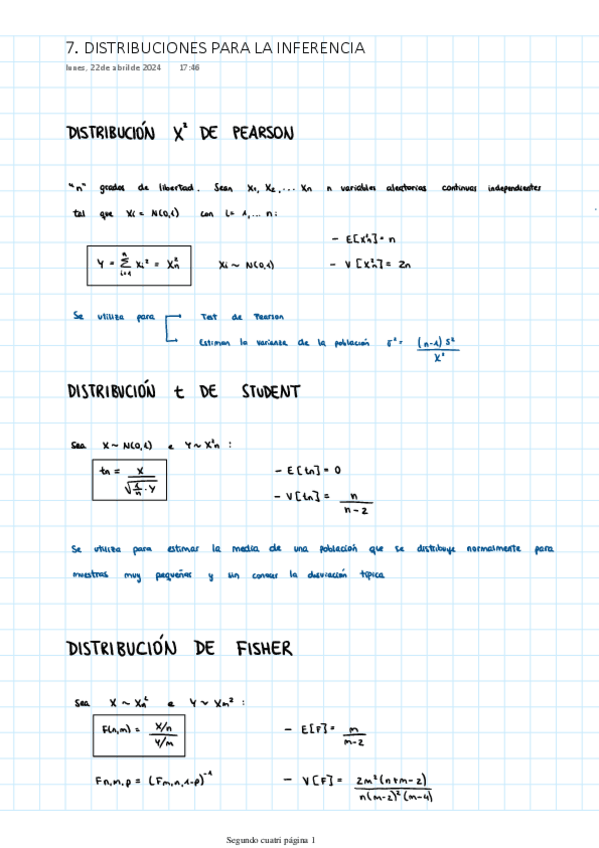 7. DISTRIBUCIONES PARA LA INFERENCIA
lunes, 22 de abril de 2024 17:46
DISTRIBUCIÓN X² DE PEARSON
"n" grados de libertad. Sean X₁, X₂, ... Xn n variables aleatorias continuas independientes
tal que Xi = N(0,1) con i = 1, ... n:
- E[X²n] = n
Y = Σⁿᵢ₌₁ Xi² = X²n Xi ~ N(0,1) - V[X²n] = 2n
Se utiliza para Test de Pearson
Estimar la varianza de la población σ² = (n-1) S² / X²
DISTRIBUCIÓN t DE STUDENT
Sea X ~ N(0,1) e Y ~ X²n :
tn = X / √(1/n · Y) - E[tn] = 0
- V[tn] = n / n-2
Se utiliza para estimar la media de una población que se distribuye normalmente para
muestras muy pequeñas y sin conocer la desviación típica
DISTRIBUCIÓN DE FISHER
Sea X ~ Xn² e Y ~ Xm² :
F(n,m) = X/n / Y/m - E[F] = m / m-2
Fn,m,p = (Fm,n,1-p)⁻¹ - V[F] = 2m²(n+m-2) / n(m-2)²(m-4)
Segundo cuatri página 1